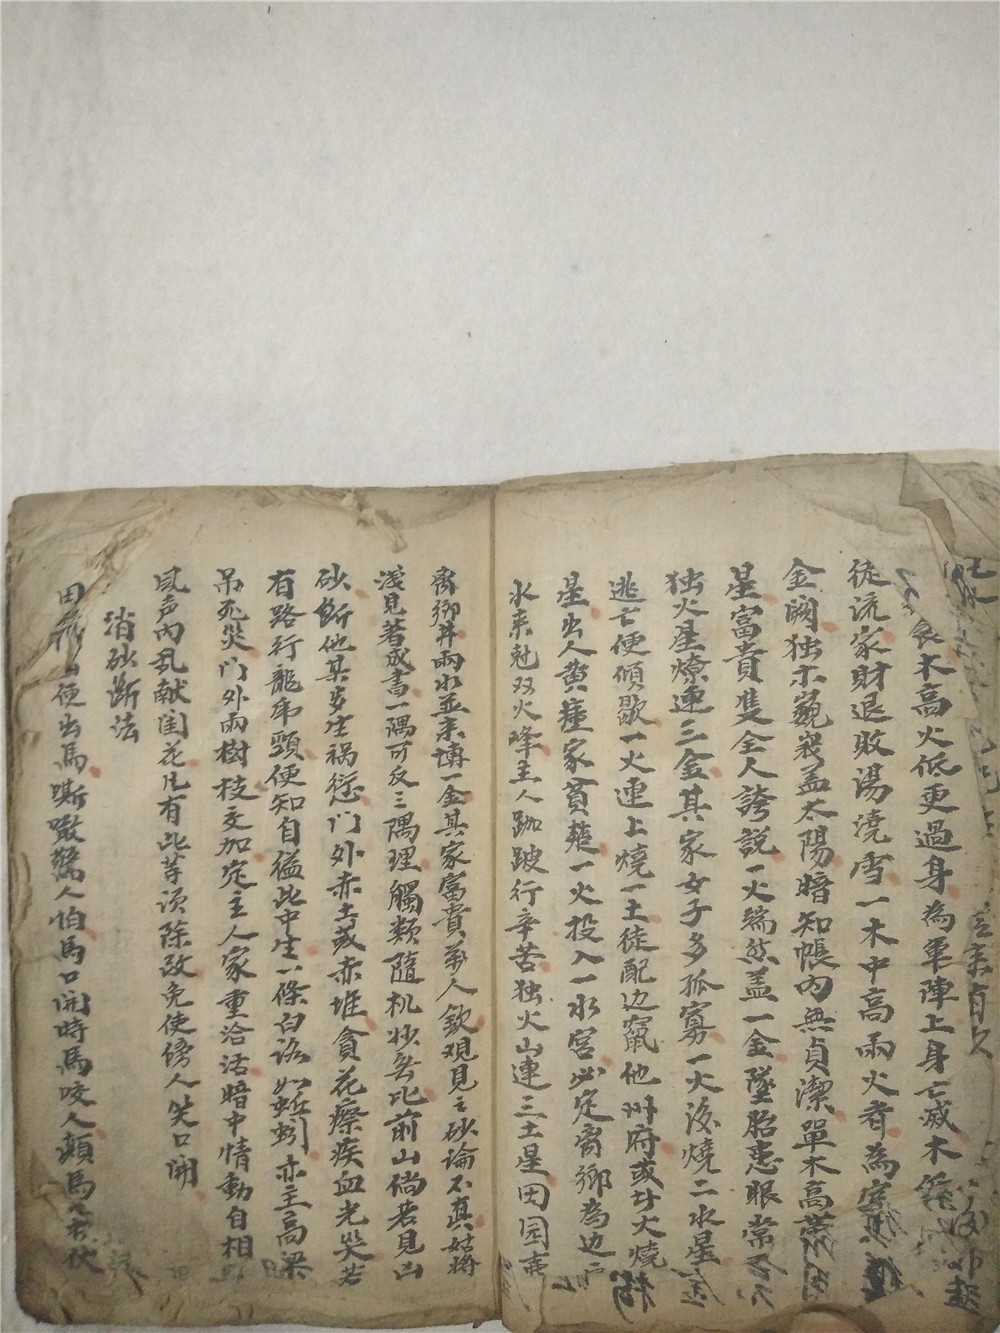 衰木高火低更過身為軍陣上身亡滅木
從流家財退敗湯澆雪一木中高兩火者為
金闕独木巍峩盖太陽暗知帳內無貞潔單木高
星富貴隻全人誇説一火端然盖一金墜胎患眼常
独火星燎連三金其家女子多孤寡一火後燒二水星
逃亡便傾歇一火連上燒一土徒配边竄他州府或廾火燒
星出人黄瘇家貧楚一火投入一水宮必定离鄉為边
水来尅双火峰主人跏跛行辛苦独火山連三土星田园
离鄉井兩水並来博一金其家富貴萬人欽观見之砂論不真姑将
浅見著成書一隅可反三隅理觸類隨机妙無比前山倘若見凶
砂断他某多生祸愆门外赤土或赤堆貪花療疾血光災若
有路行龍虎頸便知自縊此中生一條白路如蚯蚓亦主高梁
吊死災门外兩樹枝交加定主人家重洽活暗中情動自相
風声內乱献闺花凡有此等須除改免使傍人笑口開
消砂断法
田 便出馬嘶蹴驚人怕馬口開時馬咬人顛馬